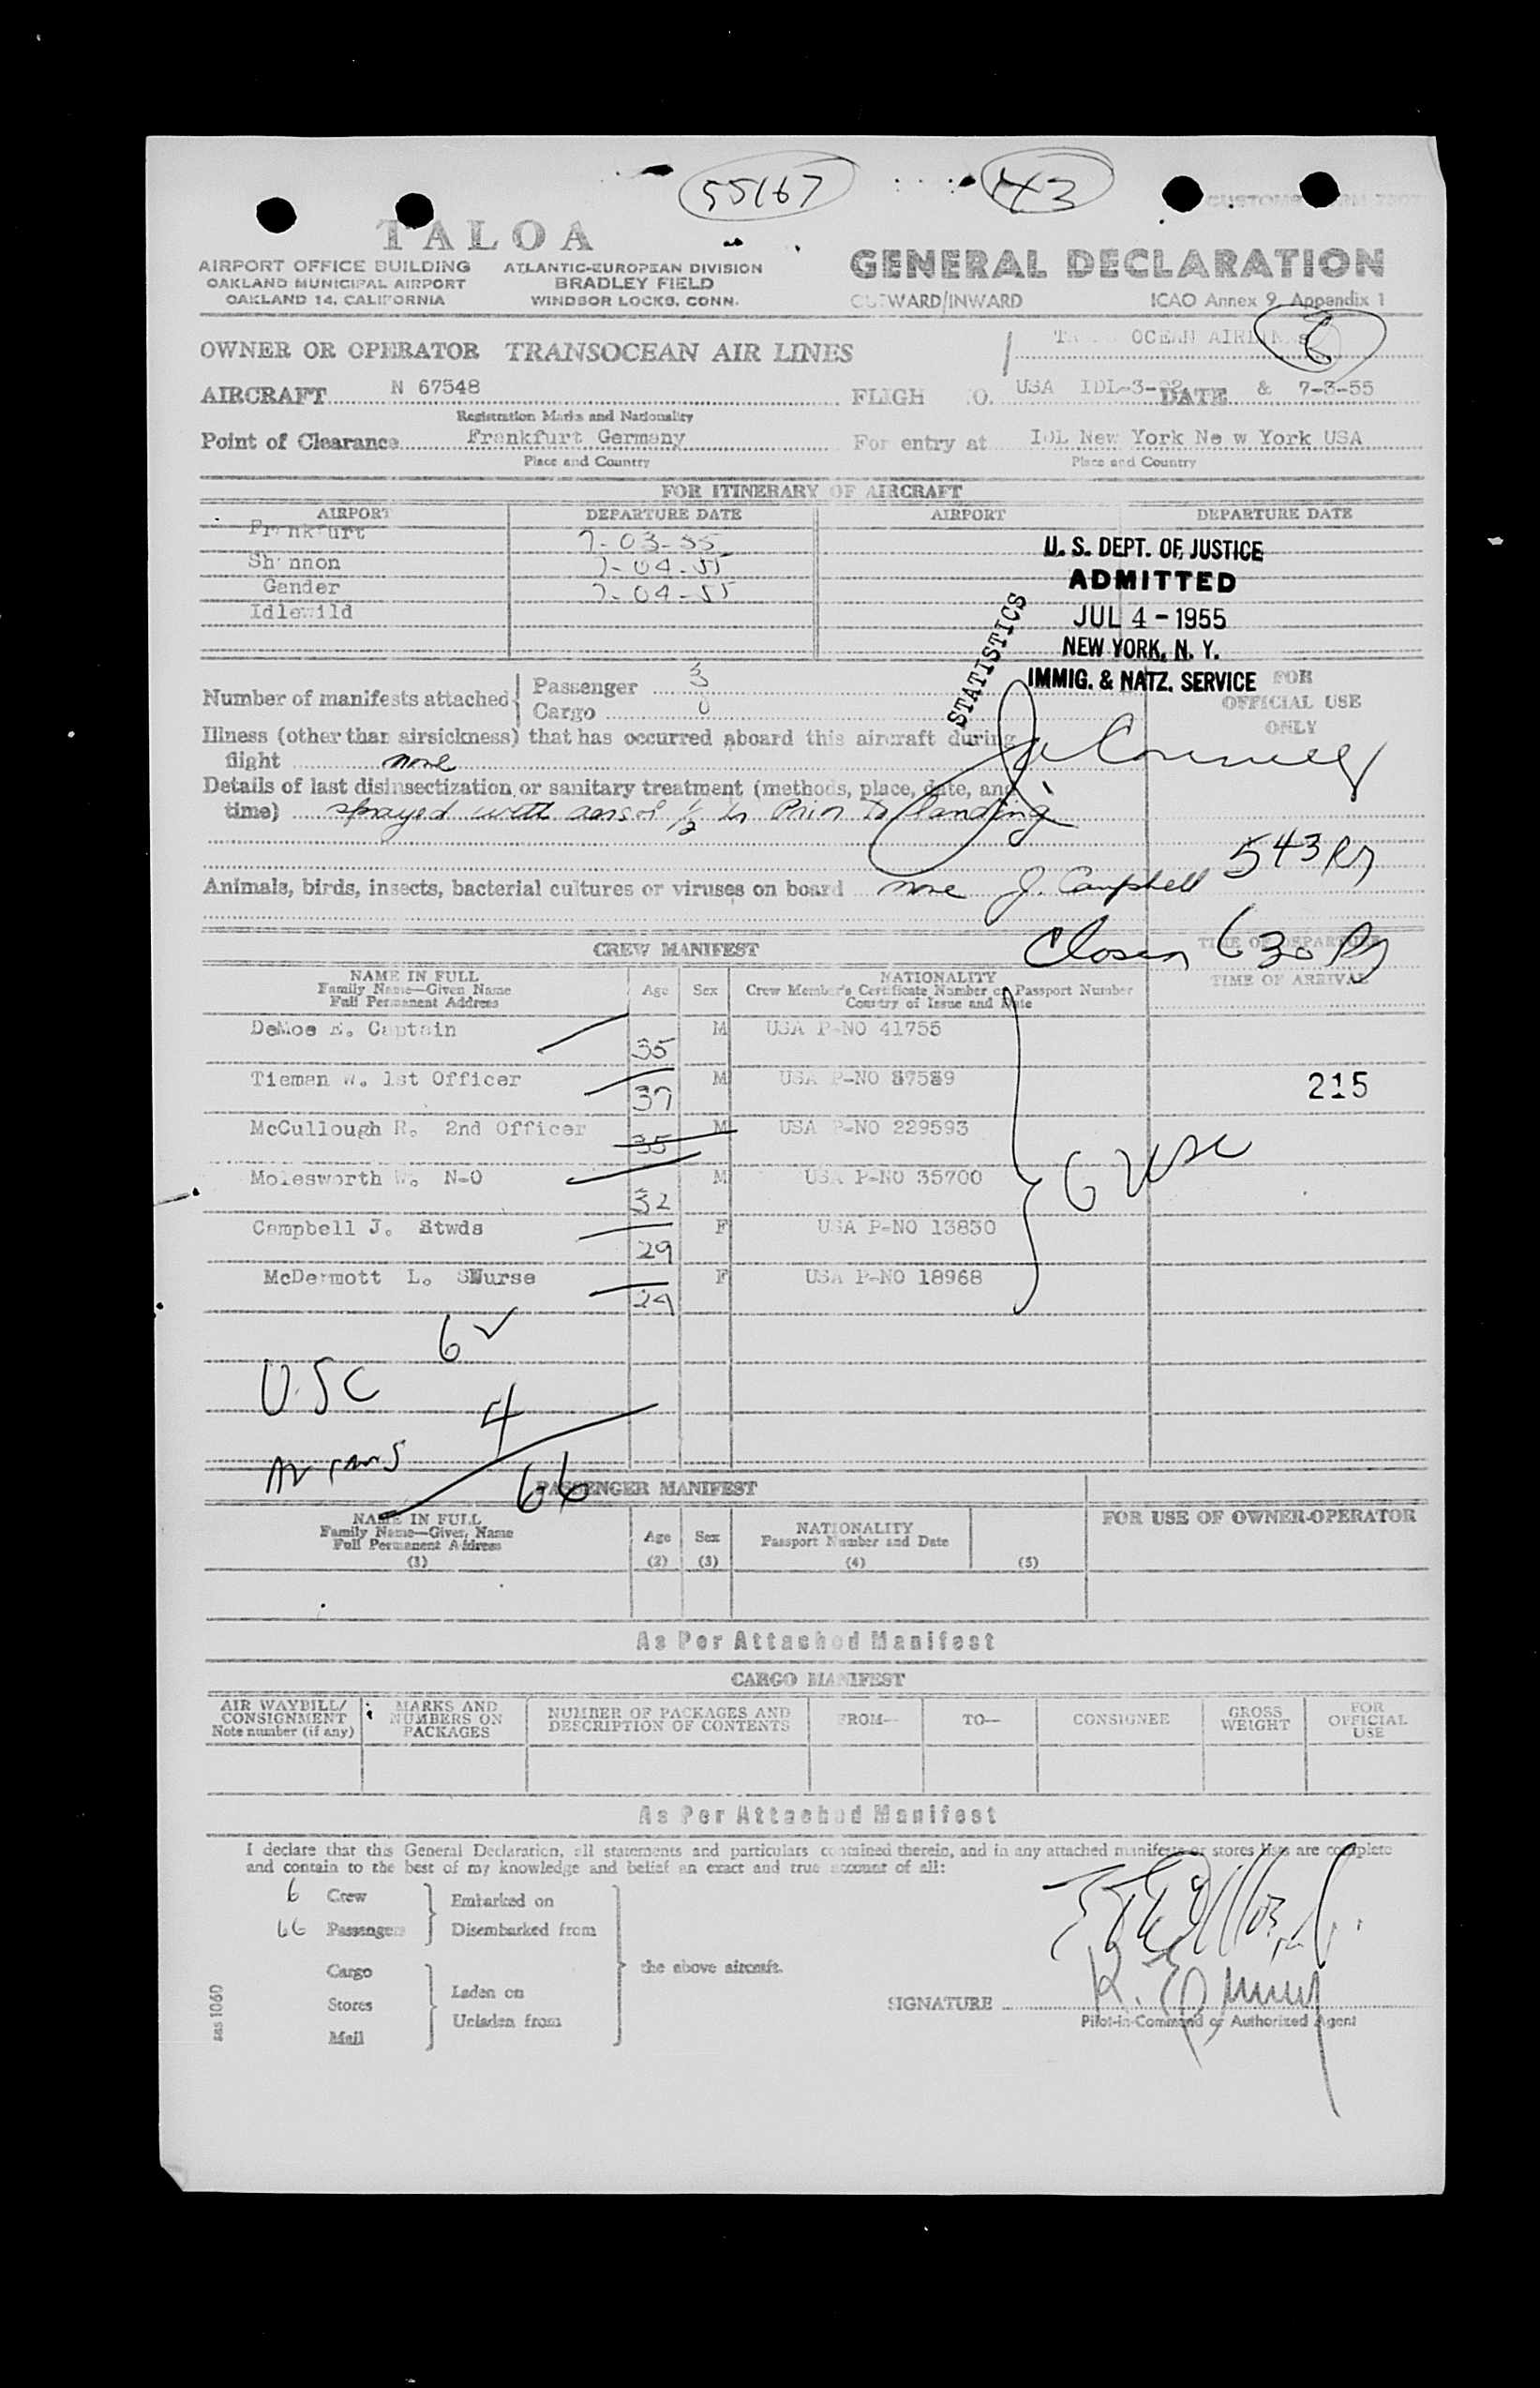 55167 43
CUSTOMS FORM 7507
TALOA
AIRPORT OFFICE BUILDING
OAKLAND MUNICIPAL AIRPORT
OAKLAND 14, CALIFORNIA
ATLANTIC-EUROPEAN DIVISION
BRADLEY FIELD
WINDSOR LOCKS, CONN.
GENERAL DECLARATION
OUTWARD/INWARD ICAO Annex 9, Appendix 1
OWNER OR OPERATOR TRANSOCEAN AIR LINES OCEAN AIRLINES 6
AIRCRAFT N 67548 FLIGH O. USA IDL-3- DATE & 7-3-55
Registration Marks and Nationality
Point of Clearance Frankfurt Germany For entry at IDL New York Ne w York USA
Place and Country Place and Country
FOR ITINERARY OF AIRCRAFT
AIRPORT DEPARTURE DATE AIRPORT DEPARTURE DATE
Frankfurt 7-03-55
Shannon 7-04-55
Gander 7-04-55
Idlewild
U. S. DEPT. OF JUSTICE
ADMITTED
JUL 4 - 1955
NEW YORK, N. Y.
IMMIG. & NATZ. SERVICE
STATISTICS
Number of manifests attached Passenger 3
Cargo 0
FOR
OFFICIAL USE
ONLY
Illness (other than airsickness) that has occurred aboard this aircraft during
flight none
Details of last disinsectization or sanitary treatment (methods, place, date, and
time) sprayed with aersol 1/2 hr Prior to landing
543 Pm
Animals, birds, insects, bacterial cultures or viruses on board none J. Campbell
Closed 630 Pm
CREW MANIFEST
TIME OF DEPARTURE
TIME OF ARRIVAL
NAME IN FULL
Family Name—Given Name
Full Permanent Address
Age Sex
NATIONALITY
Crew Member's Certificate Number or Passport Number
Country of Issue and Date
DeMoe E. Captain 35 M USA P-NO 41755
Tieman W. 1st Officer 37 M USA P-NO 87589
215
McCullough R. 2nd Officer 35 M USA P-NO 229593
6 USC
Molesworth W. N-O 32 M USA P-NO 35700
Campbell J. Stwds 29 F USA P-NO 13830
McDermott L. SNurse 29 F USA P-NO 18968
6 ✓
U.SC 4
66
PASSENGER MANIFEST
NAME IN FULL
Family Name—Given Name
Full Permanent Address
(1)
Age
(2)
Sex
(3)
NATIONALITY
Passport Number and Date
(4)
(5)
FOR USE OF OWNER-OPERATOR
As Per Attached Manifest
CARGO MANIFEST
AIR WAYBILL/
CONSIGNMENT
Note number (if any)
MARKS AND
NUMBERS ON
PACKAGES
NUMBER OF PACKAGES AND
DESCRIPTION OF CONTENTS
FROM—
TO—
CONSIGNEE
GROSS
WEIGHT
FOR
OFFICIAL
USE
As Per Attached Manifest
I declare that this General Declaration, all statements and particulars contained therein, and in any attached manifests or stores lists are complete
and contain to the best of my knowledge and belief an exact and true account of all:
6 Crew Embarked on
66 Passengers Disembarked from
Cargo
the above aircraft.
Stores Laden on
Unladen from
Mail
SIGNATURE
Pilot-in-Command or Authorized Agent
sas 1060